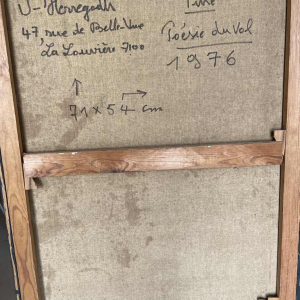 J-Herregodts
Titre
47, rue de Belle-Vue
La Louvière 7100
Poésie du Val
1976
71 x 54 cm